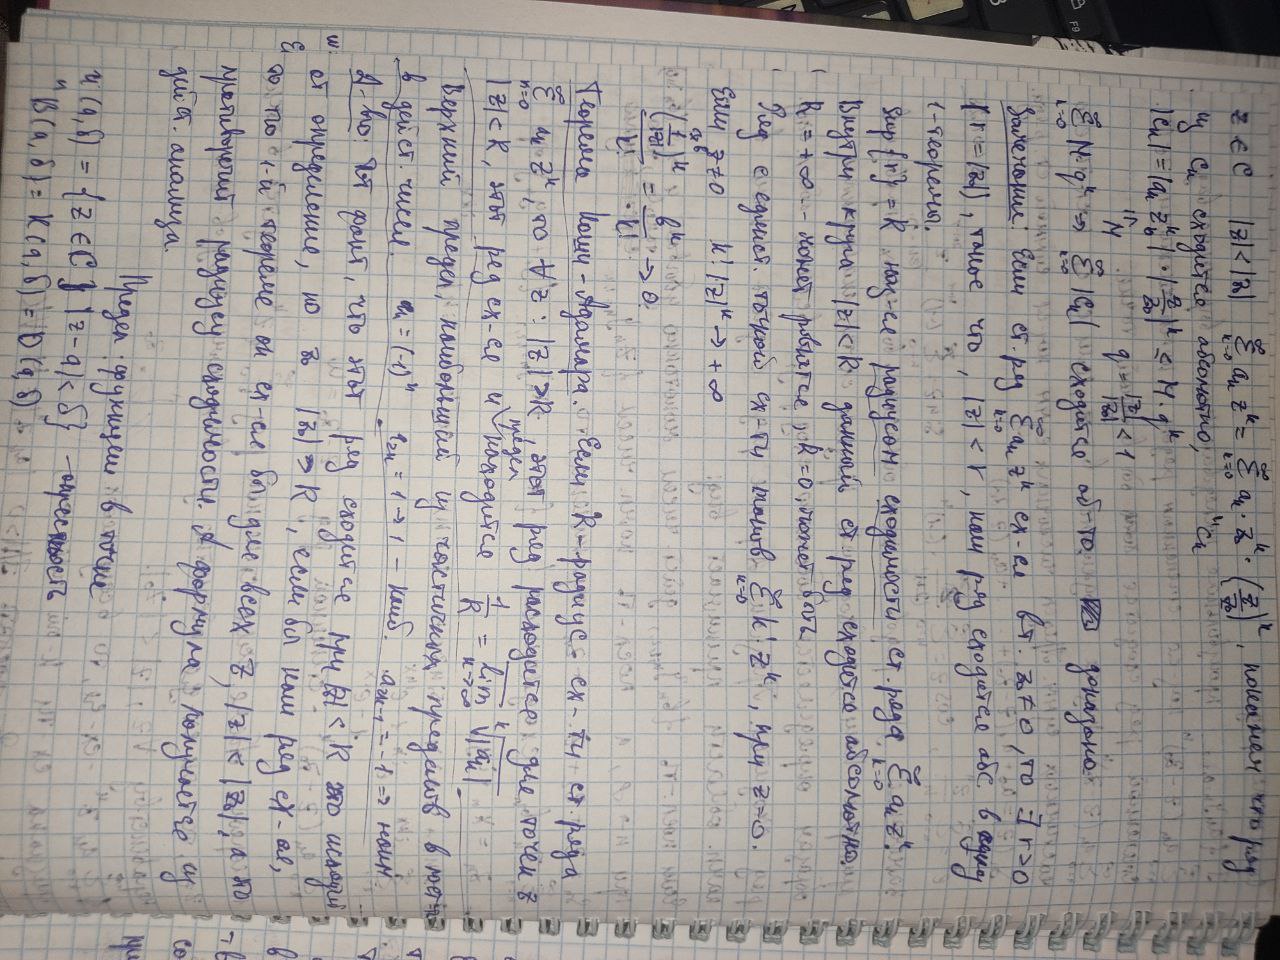 z ∈ C |z| < |z₀| ∑ aₖ zᵏ = ∑ aₖ · z₀ᵏ · (z/z₀)ᵏ, покажем что ряд
из cₖ сходится абсолютно,
|cₖ| = |aₖ z₀ᵏ| · |z/z₀|ᵏ ≤ M · qᵏ
q = |z|/|z₀| < 1
∑ M·qᵏ ⇒ ∑ |cₖ| сходится аб-но. доказано.
Замечание: Если ст. ряд ∑ aₖ zᵏ сх-ся в т. z₀ ≠ 0, то ∃ r > 0
(r = |z₀|), такое что, |z| < r, наш ряд сходится абс в силу
1-теоремы.
Sup {r} = R наз-ся радиусом сходимости ст. ряда ∑ aₖ zᵏ.
Внутри круга |z| < R данный ст ряд сходится абсолютно.
R = +∞ - может равняться, R = 0, может быть
Ряд с единст. точкой сх-ти таков ∑ k! zᵏ, при z = 0.
Если z ≠ 0 k! |z|ᵏ → +∞
Теорема Коши - Адамара. Если R - радиус сх-ти ст ряда
∑ aₖ zᵏ, то ∀ z: |z| > R, этот ряд расходится, а для точек z
|z| < R, этот ряд сх-ся и находится 1/R = lim ᵏ√|aₖ|
предел
Верхний предел, наибольший из частичных пределов в
в действ. числе. aₙ = (-1)ⁿ a₂ₙ = 1 → 1 - наиб. a₂ₙ₋₁ = -1 ⇒ наим.
Д-во: факт, что этот ряд сходится при |z| < R это исходит
от определение, но |z₀| > R, если бы наш ряд сх-ся,
то по 1-й теореме он сх-ся бы для всех z, |z| < |z₀|, а это
противоречит радиусу сходимости. А формула получается из
действ. анализа.
Предел функции в точке
U(a, δ) = {z ∈ C | |z-a| < δ} - окрестность
B(a, δ) = K(a, δ) = D(a, δ)